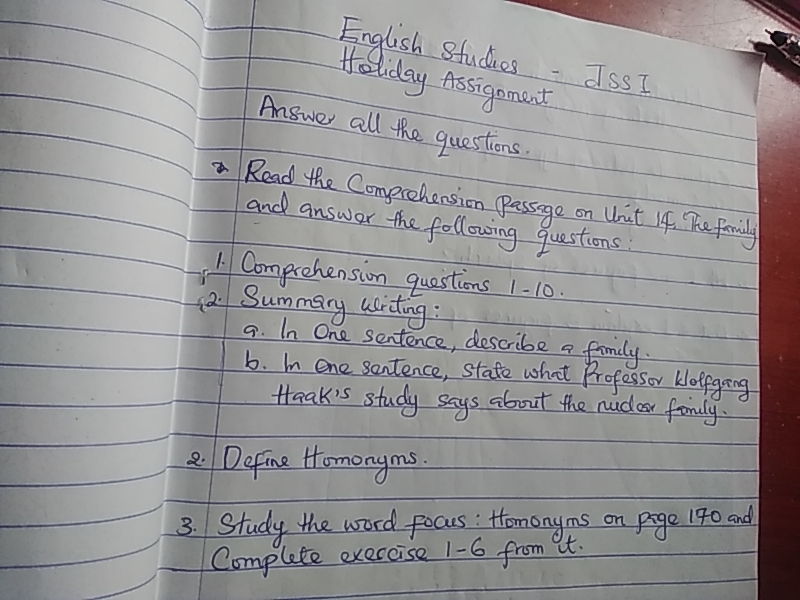 English Studies - JSS I
Holiday Assignment
Answer all the questions.
Read the Comprehension Passage on Unit 14, The family
and answer the following questions:
1. Comprehension questions 1-10.
2. Summary Writing:
a. In One sentence, describe a family.
b. In one sentence, state what Professor Wolfgang
Haak's study says about the nuclear family.
2. Define Homonyms.
3. Study the word focus: Homonyms on page 170 and
Complete exercise 1-6 from it.